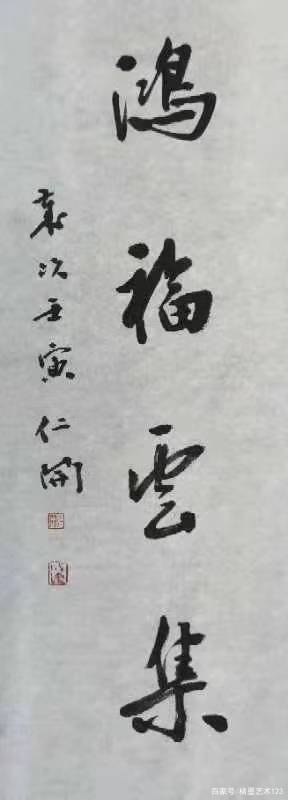 鴻福雲集
歲次壬寅仁開
百家号/楠墨艺术123